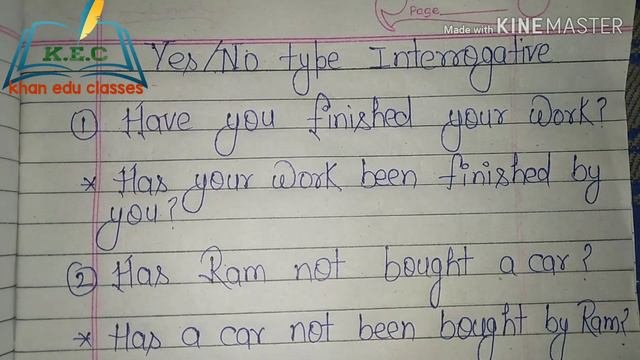 Page
Made with KINEMASTER
K.E.C
khan edu classes
Yes/No type Interrogative
① Have you finished your work?
* Has your work been finished by
you?
② Has Ram not bought a car?
* Has a car not been bought by Ram?